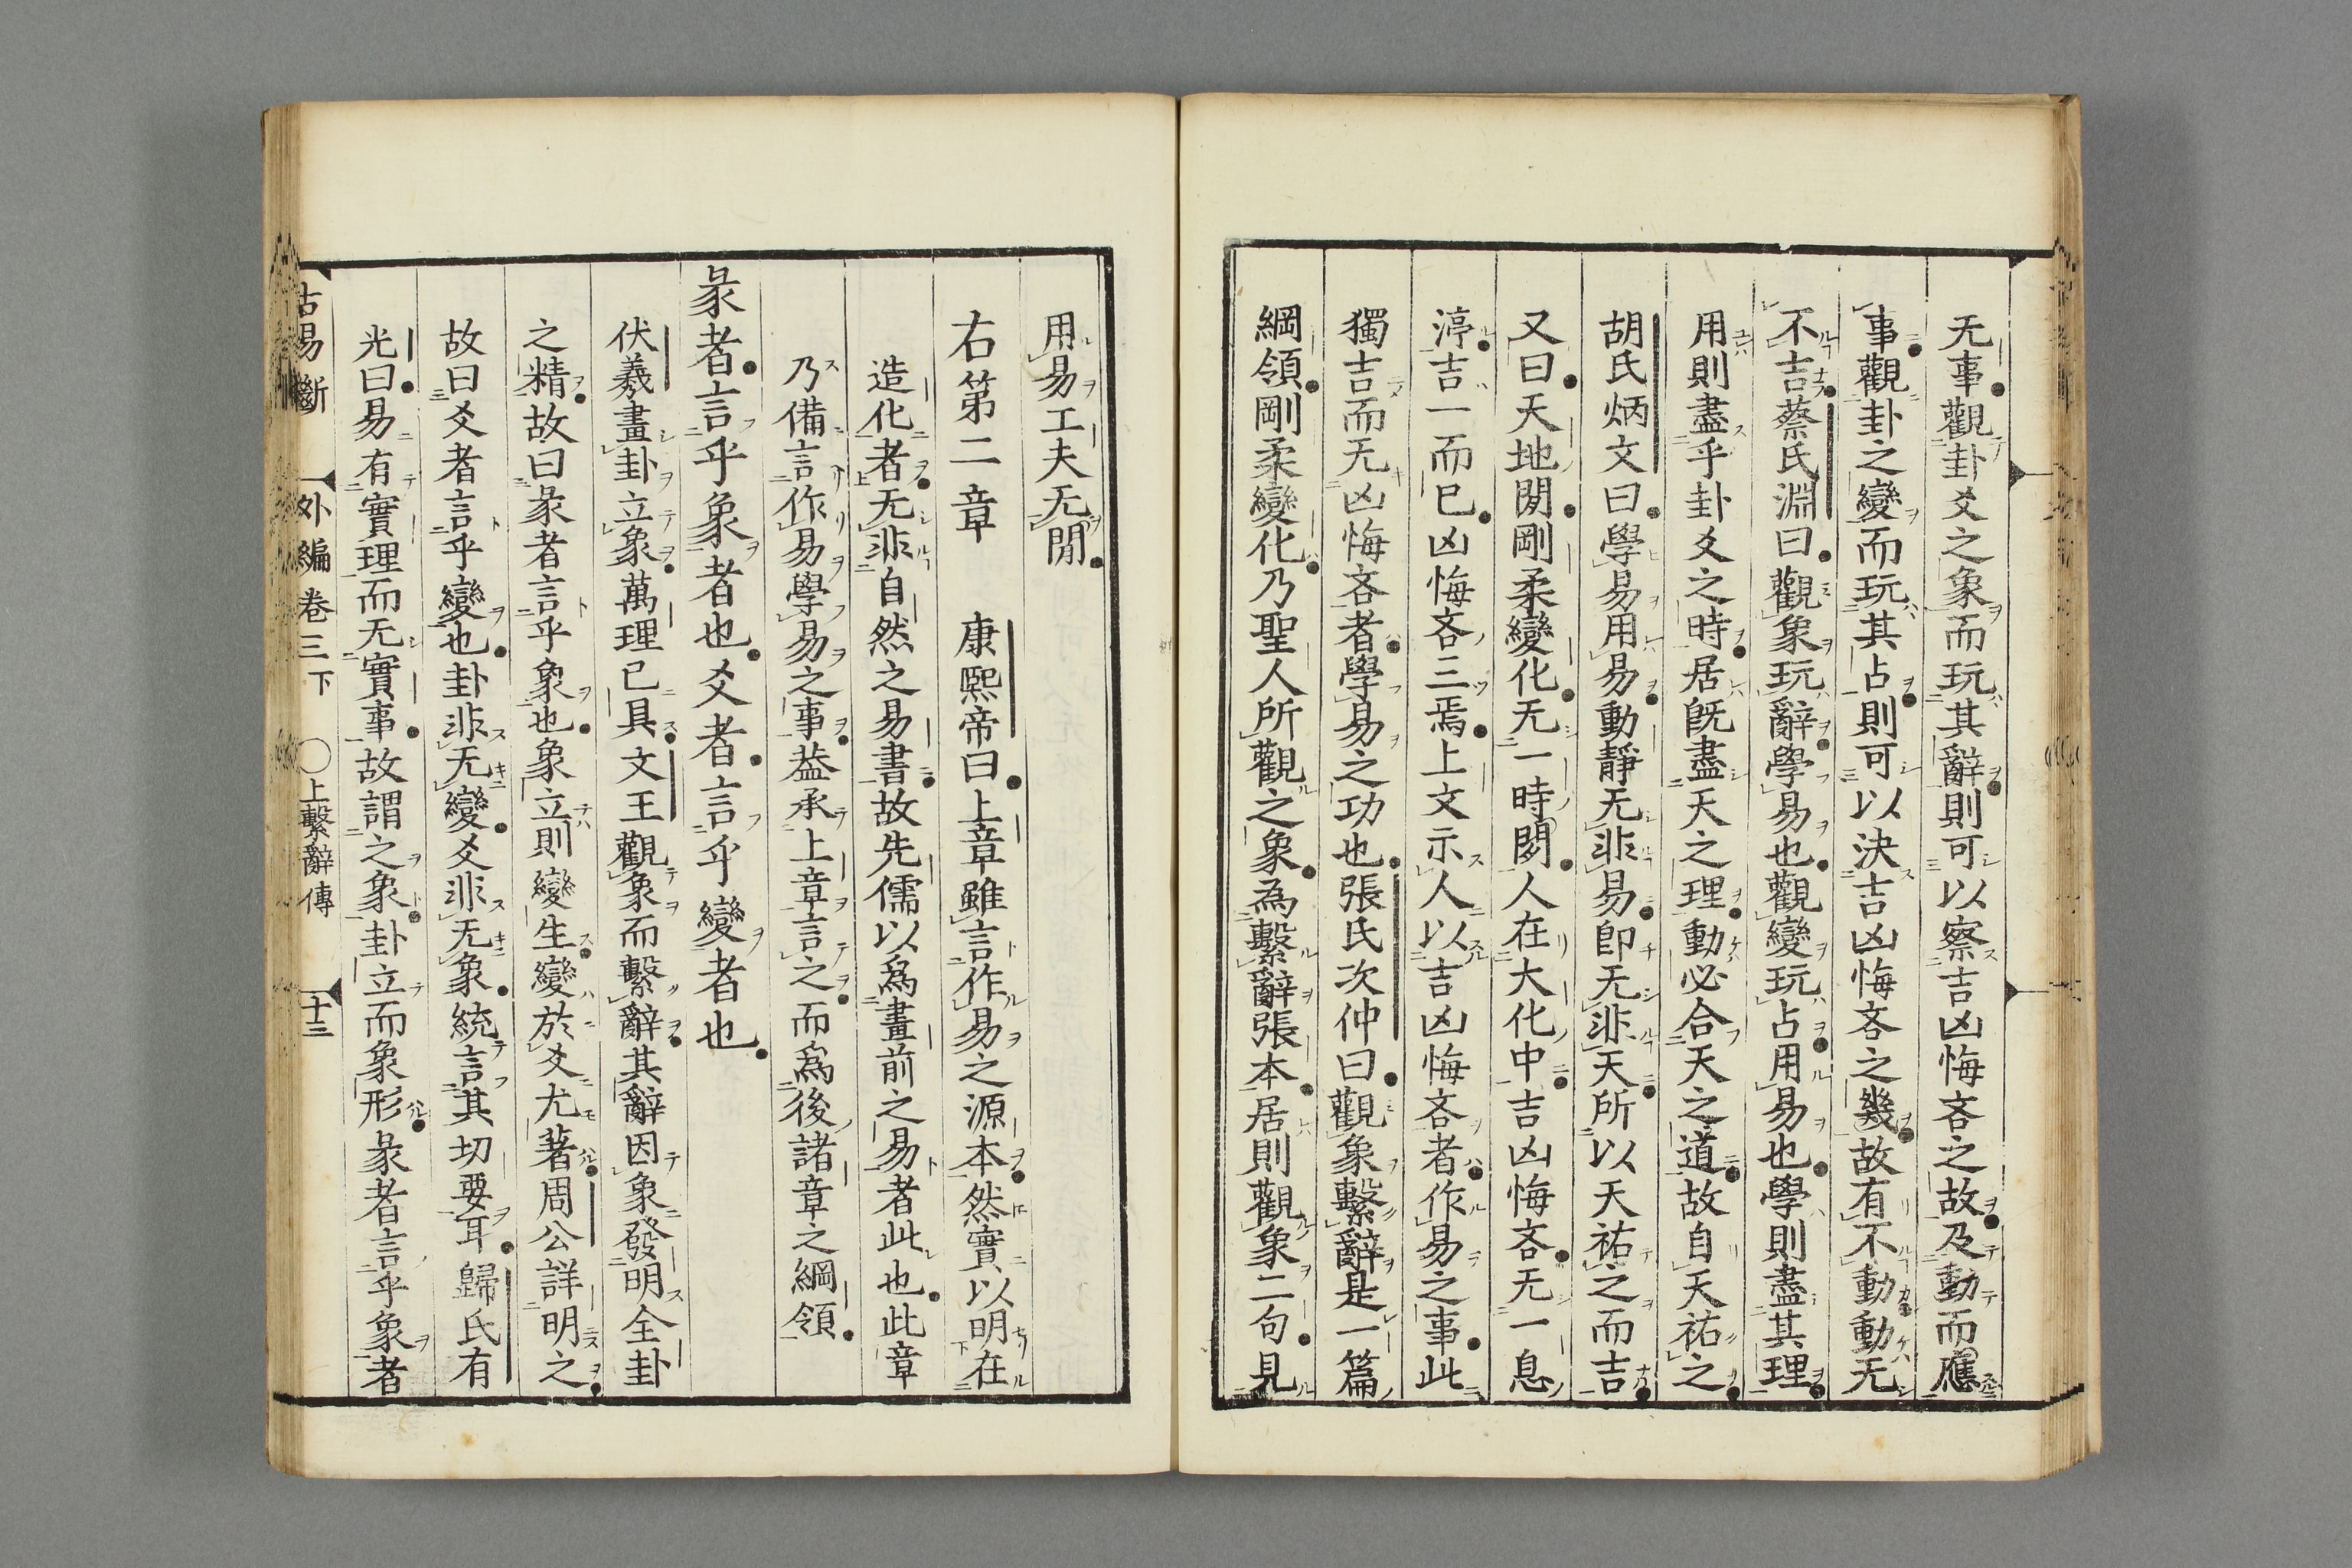 无事觀卦爻之象而玩其辭則可以察吉凶悔吝之故及動而應
事觀卦之變而玩其占則可以決吉凶悔吝之幾故有不動動无
不吉蔡氏淵曰觀象玩辭學易也觀變玩占用易也學則盡其理
用則盡乎卦爻之時居既盡天之理動必合天之道故自天祐之
胡氏炳文曰學易用易動靜无非易卽无非天所以天祐之而吉
又曰天地閒剛柔變化无一時閒人在大化中吉凶悔吝无一息
渟吉一而已凶悔吝三焉上文示人以吉凶悔吝者作易之事此
獨吉而无凶悔吝者學易之功也張氏次仲曰觀象繫辭是一篇
綱領剛柔變化乃聖人所觀之象為繫辭張本居則觀象二句見
用易工夫无閒
右第二章 康熙帝曰上章雖言作易之源本然實以明在
造化者无非自然之易書故先儒以爲畫前之易者此也此章
乃備言作易學易之事葢承上章言之而爲後諸章之綱領
彖者言乎象者也爻者言乎變者也
伏羲畫卦立象萬理已具文王觀象而繫辭其辭因象發明全卦
之精故曰彖者言乎象也象立則變生變於爻尤著周公詳明之
故曰爻者言乎變也卦非无變爻非无象統言其切要耳歸氏有
光曰易有實理而无實事故謂之象卦立而象形彖者言乎象者
古易斷 外編卷三下 ○上繫辭傳 十三